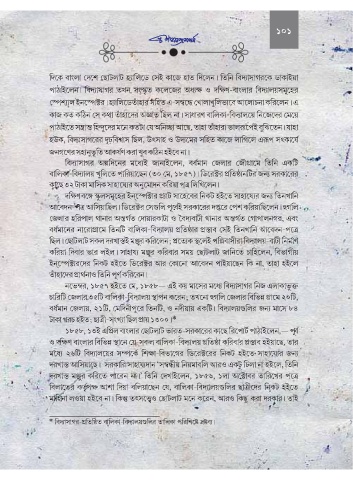 ১০১
দিকে বাংলা দেশে ছোটলাট হ্যালিডে সেই কাজে হাত দিলেন। তিনি বিদ্যাসাগরকে ডাকাইয়া
পাঠাইলেন। বিদ্যাসাগর তখন সংস্কৃত কলেজের অধ্যক্ষ ও দক্ষিণ-বাংলার বিদ্যালয়সমূহের
স্পেশাল ইনস্পেক্টর। হ্যালিডে তাঁহার সহিত এ-সম্বন্ধে খোলাখুলিভাবে আলোচনা করিলেন। এ
কাজ কত কঠিন সে কথা তাঁহাদের অজ্ঞাত ছিল না। সাধারণ বালিকা-বিদ্যালয়ে নিজেদের মেয়ে
পাঠাইতে সম্ভ্রান্ত হিন্দুদের মনে কতটা যে অনিচ্ছা আছে, তাহা তাঁহারা ভালরূপেই বুঝিতেন। যাহা
হউক, বিদ্যাসাগরের দৃঢ়বিশ্বাস ছিল, উৎসাহ ও উদ্যমের সহিত কাজে লাগিলে এরূপ সৎকার্যে
জনগণের সহানুভূতি আকর্ষণ করা খুব কঠিন হইবে না।
বিদ্যাসাগর অল্পদিনের মধ্যেই জানাইলেন, বর্ধমান জেলার জৌগ্রামে তিনি একটি
বালিকা-বিদ্যালয় খুলিতে পারিয়াছেন (৩০ মে, ১৮৫৭)। ডিরেক্টর প্রতিষ্ঠানটির জন্য সরকারের
কাছে ৩২ টাকা মাসিক সাহায্যের অনুমোদন করিয়া পত্র লিখিলেন।
দক্ষিণবঙ্গে স্কুলসমূহের ইনস্পেক্টার প্র্যাট সাহেবের নিকট হইতে সাহায্যের জন্য তিনখানি
আবেদন-পত্র আসিয়াছিল। ডিরেক্টর সেগুলি পূর্বেই সরকারের দপ্তরে পেশ করিয়াছিলেন। হুগলি
জেলার হরিপাল থানার অন্তর্গত দোয়ারহাটা ও বৈদ্যবাটী থানার অন্তর্গত গোপালনগর, এবং
বর্ধমানের নারোগ্রামে তিনটি বালিকা-বিদ্যালয় প্রতিষ্ঠার প্রস্তাব সেই তিনখানি আবেদন-পত্রে
ছিল। ছোটলাট সকল দরখাস্তই মঞ্জুর করিলেন; প্রত্যেক স্থলেই পল্লিবাসীরা বিদ্যালয়-বাটী নির্মাণ
করিয়া দিবার ভার লইল। সাহায্য মঞ্জুর করিবার সময় ছোটলাট জানিতে চাহিলেন, বিভাগীয়
ইনস্পেক্টারদের নিকট হইতে ডিরেক্টর আর কোনো আবেদন পাইয়াছেন কি না, তাহা হইলে
তাঁহাদের প্রার্থনাও তিনি পূর্ণ করিবেন।
নভেম্বর, ১৮৫৭ হইতে মে, ১৮৫৮— এই কয় মাসের মধ্যে বিদ্যাসাগর নিজ এলাকাভুক্ত
চারিটি জেলায় ৩৫টি বালিকা-বিদ্যালয় স্থাপন করেন, তখনো হুগলি জেলার বিভিন্ন গ্রামে ২০টি,
বর্ধমান জেলায়, ১১টি, মেদিনীপুরে তিনটি, ও নদীয়ায় একটি। বিদ্যালয়গুলির জন্য মাসে ৮৪
টাকা খরচ হইত; ছাত্রী সংখ্যা ছিল প্রায় ১৩০০।*
১৮৫৮, ১৩ই এপ্রিল বাংলার ছোটলাট ভারত-সরকারের কাছে রিপোর্ট পাঠাইলেন,— পূর্ব
ও দক্ষিণ বাংলার বিভিন্ন স্থানে যে-সকল বালিকা-বিদ্যালয় প্রতিষ্ঠা করিবার প্রস্তাব হইয়াছে, তার
মধ্যে ২৬টি বিদ্যালয়ের সম্পর্কে শিক্ষা-বিভাগের ডিরেক্টরের নিকট হইতে সাহায্যের জন্য
দরখাস্ত আসিয়াছে। সরকারি সাহায্যদান 'সম্বন্ধীয় নিয়মাবলি আরও একটু ঢিলা না হইলে, তিনি
দরখাস্ত মঞ্জুর করিতে পারেন না।' তিনি দেখাইলেন, ১৮৫৬, ১লা অক্টোবর তারিখের পত্রে
বিলাতের কর্তৃপক্ষ আশা দিয়া বলিয়াছেন যে, বালিকা-বিদ্যালয়গুলির ছাত্রীদের নিকট হইতে
মাহিনা লওয়া হইবে না। কিন্তু তৎসত্ত্বেও ছোটলাট মনে করেন, আরও কিছু করা দরকার। তাই
* বিদ্যাসাগর-প্রতিষ্ঠিত বালিকা-বিদ্যালয়গুলির তালিকা পরিশিষ্টে দ্রষ্টব্য।